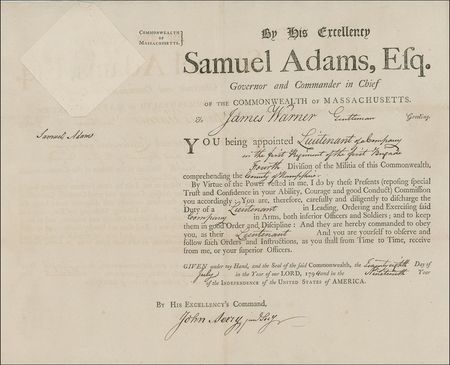 COMMONWEALTH
OF
MASSACHUSETTS.
By His Excellency
Samuel Adams, Esq.
Governor and Commander in Chief
OF THE COMMONWEALTH OF MASSACHUSETTS.
To James Warner Gentleman Greeting.
Samuel Adams
YOU being appointed Lieutenant of a Company
in the first Regiment of the first Brigade
Fourth Division of the Militia of this Commonwealth,
comprehending the County of Hampshire
By Virtue of the Power vested in me, I do by these Presents (reposing special
Trust and Confidence in your Ability, Courage and good Conduct) Commission
you accordingly: You are, therefore, carefully and diligently to discharge the
Duty of a Lieutenant in Leading, Ordering and Exercising said
Company in Arms, both inferior Officers and Soldiers; and to keep
them in good Order and Discipline: And they are hereby commanded to obey
you, as their Lieutenant And you are yourself to observe and
follow such Orders and Instructions, as you shall from Time to Time, receive
from me, or your superior Officers.
GIVEN under my Hand, and the Seal of the said Commonwealth, the Twenty eighth Day of
July in the Year of our LORD, 1794 and in the Nineteenth Year
of the INDEPENDENCE of the UNITED STATES OF AMERICA.
BY HIS EXCELLENCY'S COMMAND,
John Avery jun Secy